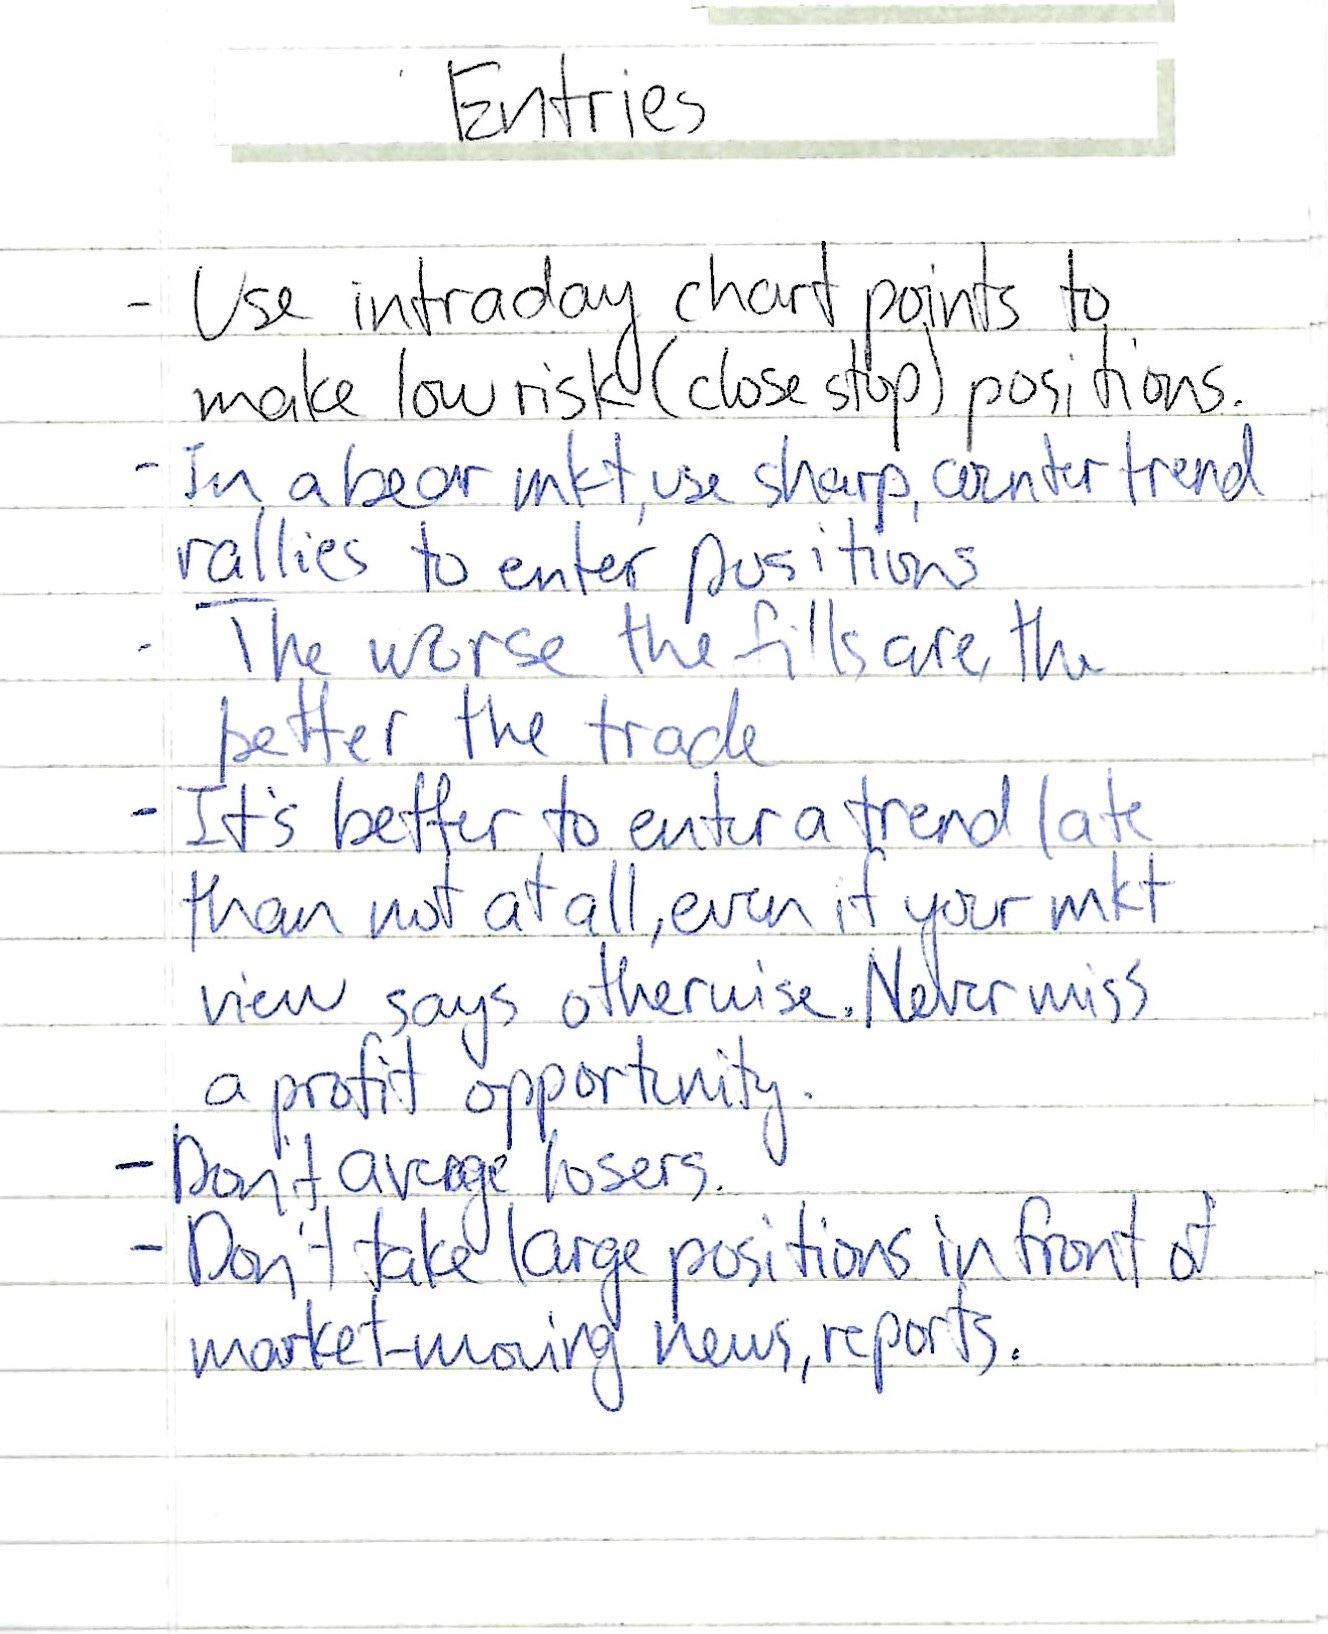 Entries
- Use intraday chart points to
make low risk (close stop) positions.
- In a bear mkt, use sharp, counter trend
rallies to enter positions
- The worse the fills are, the
better the trade
- It's better to enter a trend late
than not at all, even if your mkt
view says otherwise. Never miss
a profit opportunity.
- Don't average losers.
- Don't take large positions in front of
market-moving news, reports.